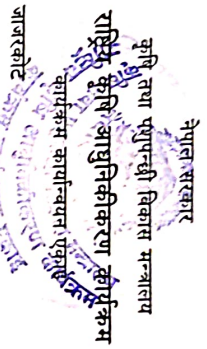 नेपाल सरकार
कृषि तथा पशुपन्छी विकास मन्त्रालय
राष्ट्रिय कृषि आधुनिकीकरण कार्यक्रम
कार्यक्रम कार्यान्वयन एकाइ
जाजरकोट